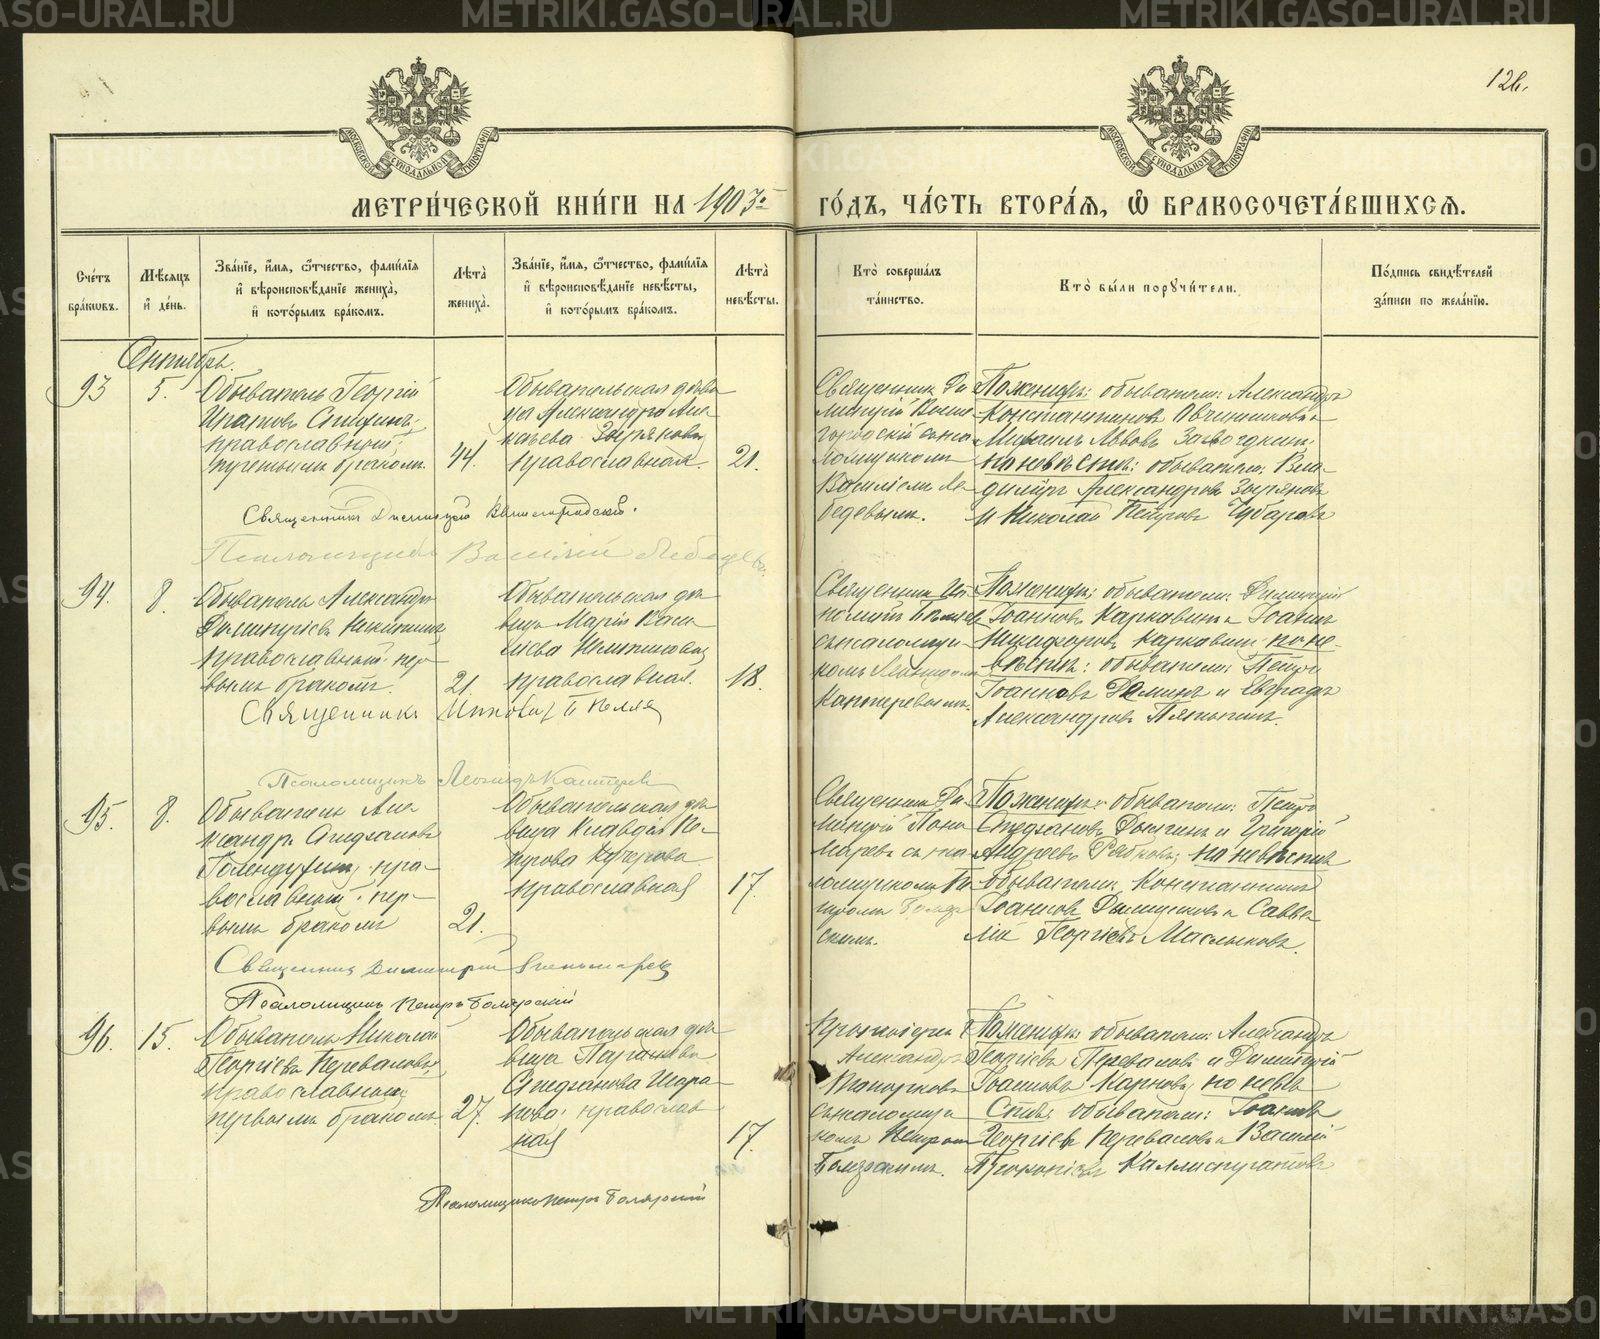 126.
МЕТРИ́ЧЕСКОЙ КНИ́ГИ НА 1903 ГО́ДЪ, ЧА́СТЬ ВТОРА́Я, Ѽ БРАКОСОЧЕТА́ВШИХСЯ.
Сче́тъ бра́кωвъ.
Мѣ́сяцъ и҆ де́нь.
Зва́нїе, и҆́мя, ѻ҆́тчество, фамилїя и҆ вѣроисповѣ́данїе жениха̀, и҆ кото́рымъ бра́комъ.
Лѣта̀ жениха̀.
Зва́нїе, и҆́мя, ѻ҆́тчество, фамилїя и҆ вѣроисповѣ́данїе невѣ́сты, и҆ кото́рымъ бра́комъ.
Лѣта̀ невѣ́сты.
Кто̀ соверша́лъ та́инство.
Кто̀ бы́ли порꙋчи́тели.
По́дпись свидѣ́телей за́писи по жела́нїю.
Сентябрь.
93
5.
Обыватель Георгій
Ипатовъ
православный,
третьимъ бракомъ.
44.
Обывательская дѣви-
ца Александра Але-
ксѣева Зырянова
православная.
21.
Священникъ Ди-
митрій
городскій съ пса-
ломщикомъ
Василіемъ Ле-
бедевымъ.
По женихѣ: обыватели: Александръ
Константиновъ Овчинниковъ и
Михаилъ Львовъ
по невѣстѣ: обыватели: Вла-
диміръ Александровъ Зыряновъ
и Николай Петровъ Чубаровъ
Священникъ Димитрій
Псаломщикъ Василій Лебедевъ.
94.
8.
Обыватель Александръ
Димитріевъ Никитинъ
православный, пер-
вымъ бракомъ.
21.
Обывательская дѣ-
вица Марія Васи-
ліева
православная.
18.
Священникъ Ип-
политъ
съ псаломщи-
комъ Леонидомъ
Каптеревымъ.
По женихѣ: обыватели: Димитрій
Іоанновъ Каркавинъ и Іоаннъ
Никифоровъ Каркавинъ по не-
вѣстѣ: обыватели: Петръ
Іоанновъ Деминъ и Евграфъ
Александровъ
Священникъ
Псаломщикъ Леонидъ Каптеревъ
95.
8.
Обыватель Але-
ксандръ Стефановъ
Голендухинъ, пра-
вославный, пер-
вымъ бракомъ
21.
Обывательская дѣ-
вица Клавдія Пе-
трова Кучерова
православная
17.
Священникъ Ди-
митрій Поно-
маревъ съ пса-
ломщикомъ Пе-
тромъ Бояр-
скимъ.
По женихѣ: обыватели: Петръ
Стефановъ и Григорій
Андреевъ Рябковъ; по невѣстѣ
обыватели Константинъ
Іоанновъ и Савва
Георгіевъ Маслыковъ
Священникъ Димитрій Пономаревъ
Псаломщикъ Петръ Боярскій
96.
15.
Обыватель Николай
Георгіевъ Переваловъ,
православный,
первымъ бракомъ.
27.
Обывательская дѣ-
вица
Стефанова Шара-
пова православ-
ная
17.
Протоіерей
Александръ
Топорковъ
съ псаломщи-
комъ Петромъ
Боярскимъ.
По женихѣ: обыватели: Александръ
Георгіевъ Переваловъ и Димитрій
Іоанновъ Карповъ, по невѣ-
стѣ: обыватели: Іоаннъ
Георгіевъ Переваловъ и Василій
Каллистратовъ
Псаломщикъ Петръ Боярскій